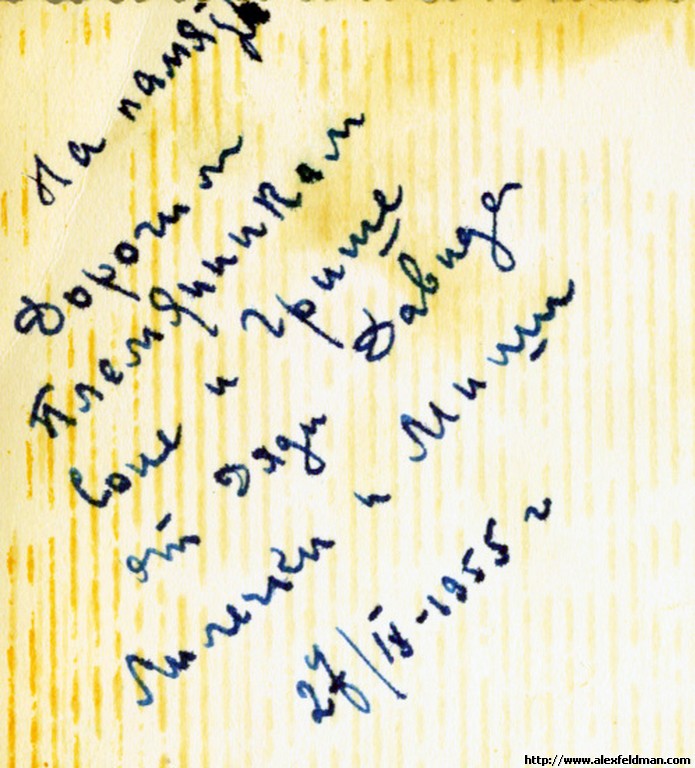 На память
Дорогим
Племянникам
Соне и Грише
от дяди Давида
Лилечки и Миши
27/IX-1955 г
http://www.alexfeldman.com